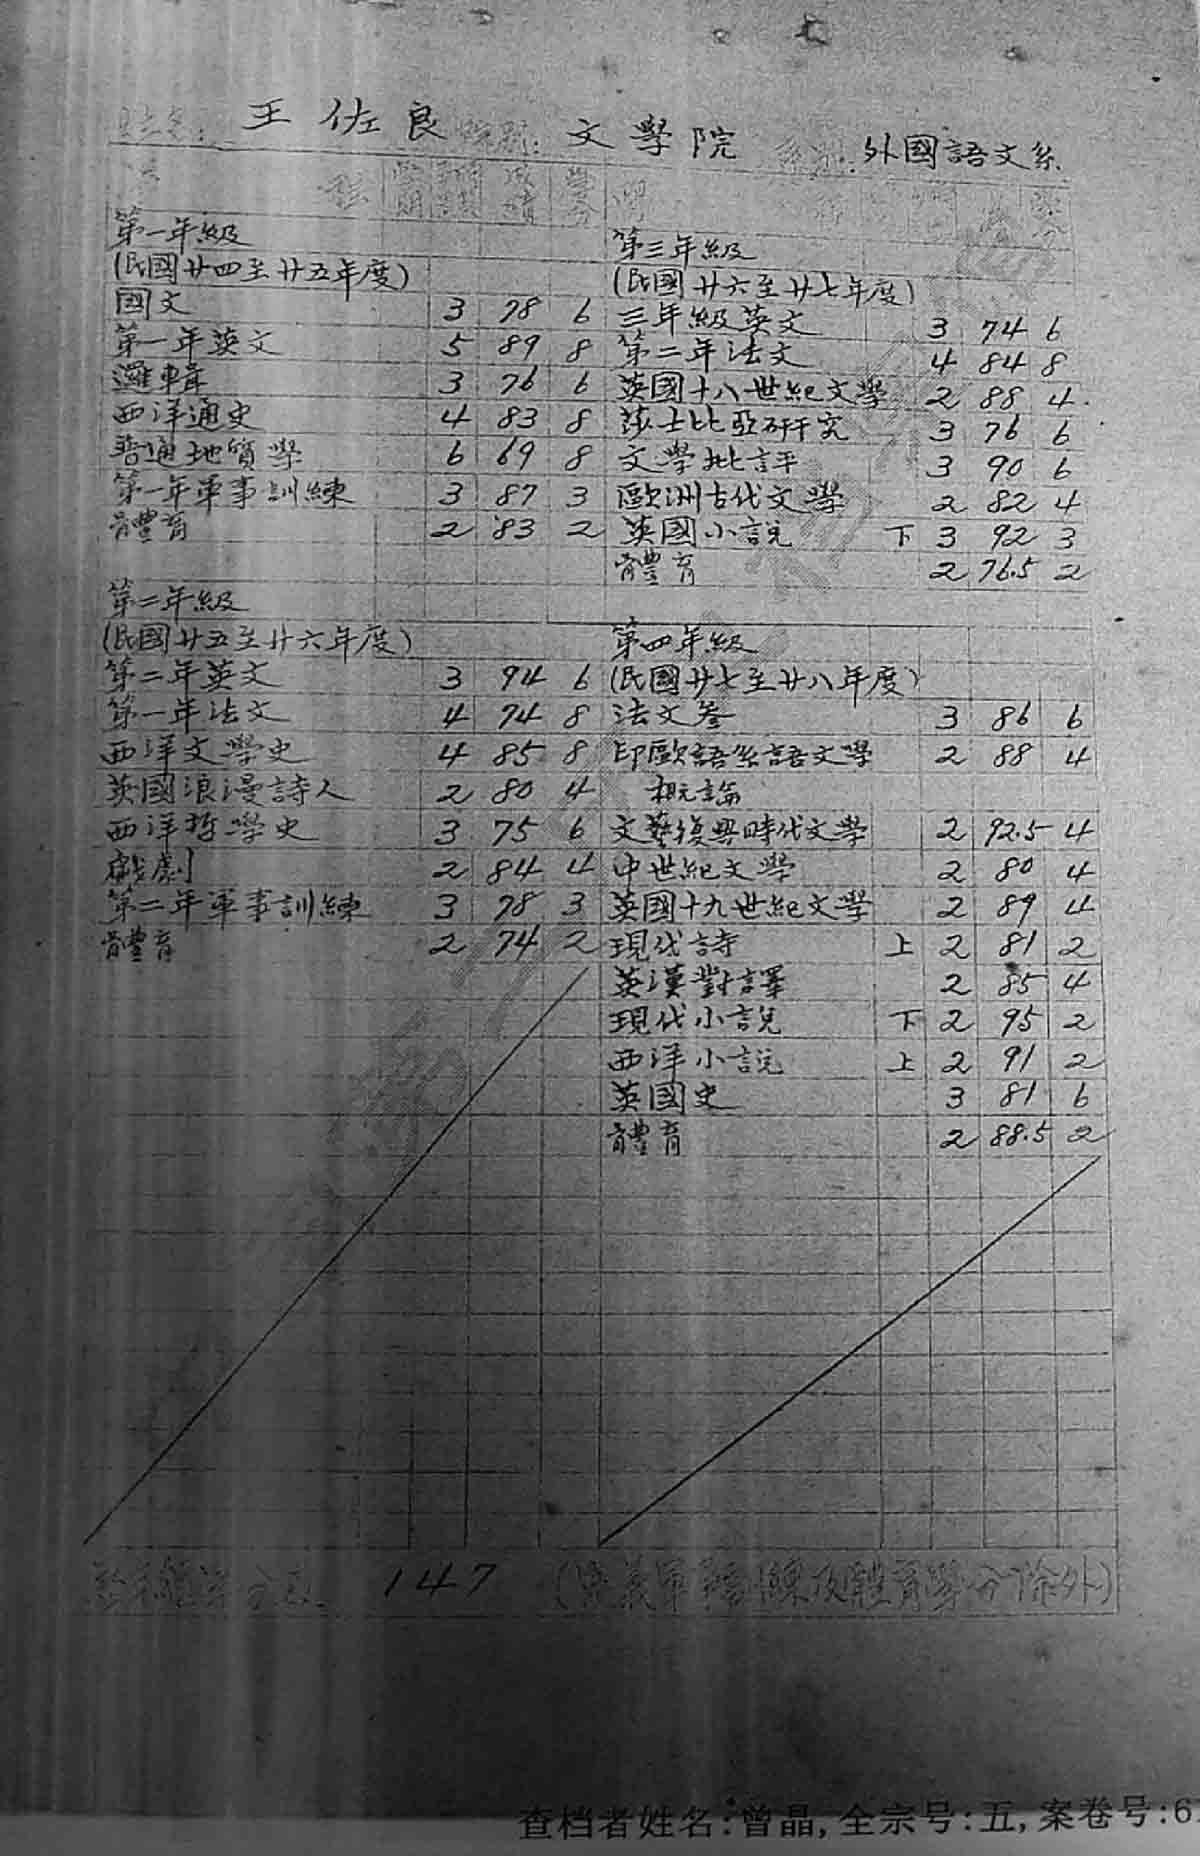 王佐良 文學院 外國語文系
第一年級
(民國廿四至廿五年度)
國文 3 78 6
第一年英文 5 89 8
邏輯 3 76 6
西洋通史 4 83 8
普通地質學 6 69 8
第一年軍事訓練 3 87 3
體育 2 83 2
第二年級
(民國廿五至廿六年度)
第二年英文 3 94 6
第一年法文 4 74 8
西洋文學史 4 85 8
英國浪漫詩人 2 80 4
西洋哲學史 3 75 6
戲劇 2 84 4
第二年軍事訓練 3 78 3
體育 2 74 2
第三年級
(民國廿六至廿七年度)
三年級英文 3 74 6
第二年法文 4 84 8
英國十八世紀文學 2 88 4
莎士比亞研究 3 76 6
文學批評 3 90 6
歐洲古代文學 2 82 4
英國小說 下 3 92 3
體育 2 76.5 2
第四年級
(民國廿七至廿八年度)
法文叁 3 86 6
印歐語系語文學 2 88 4
概論
文藝復興時代文學 2 92.5 4
中世紀文學 2 80 4
英國十九世紀文學 2 89 4
現代詩 上 2 81 2
英漢對譯 2 85 4
現代小說 下 2 95 2
西洋小說 上 2 91 2
英國史 3 81 6
體育 2 88.5 2
147 (黨義軍事訓練及體育學分除外)
查档者姓名:曾晶,全宗号:五,案卷号:6